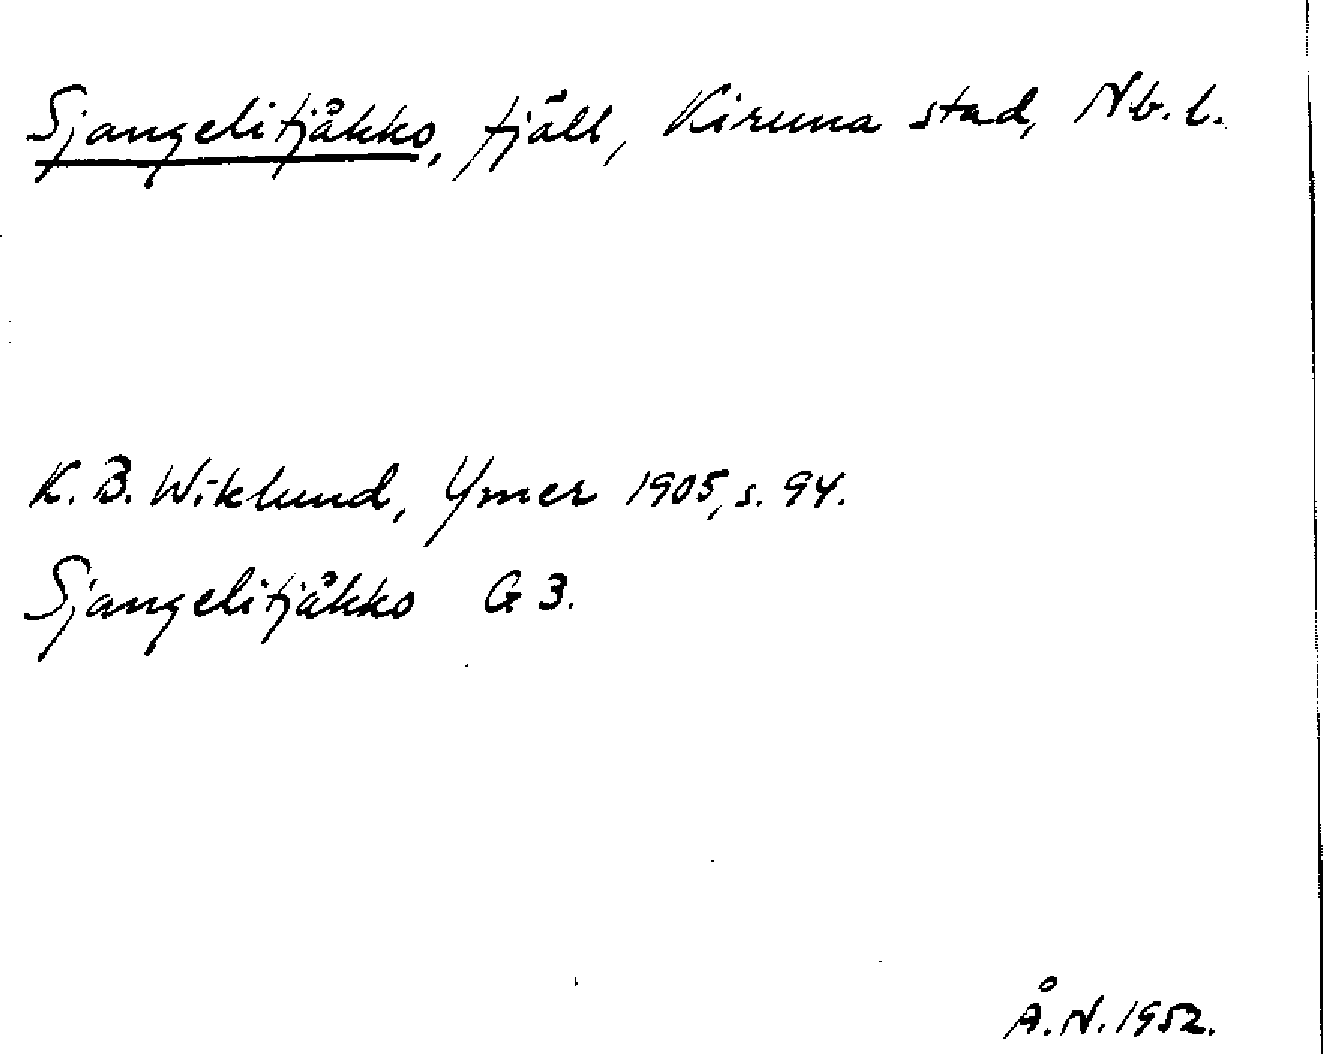 Sjangelitjåkko, fjäll, Kiruna stad, Nb. l.
K. B. Wiklund, Ymer 1905, s. 94.
Sjangelitjåkko G 3.
Å. N. 1952.